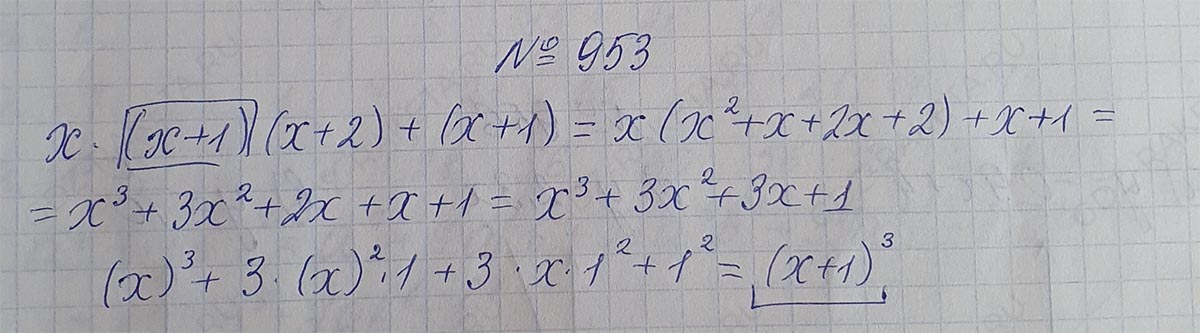 № 953
x · (x+1)(x+2) + (x+1) = x(x²+x+2x+2)+x+1 =
= x³ + 3x² + 2x + x + 1 = x³ + 3x² + 3x + 1
(x)³ + 3 · (x)² · 1 + 3 · x · 1² + 1² = (x+1)³